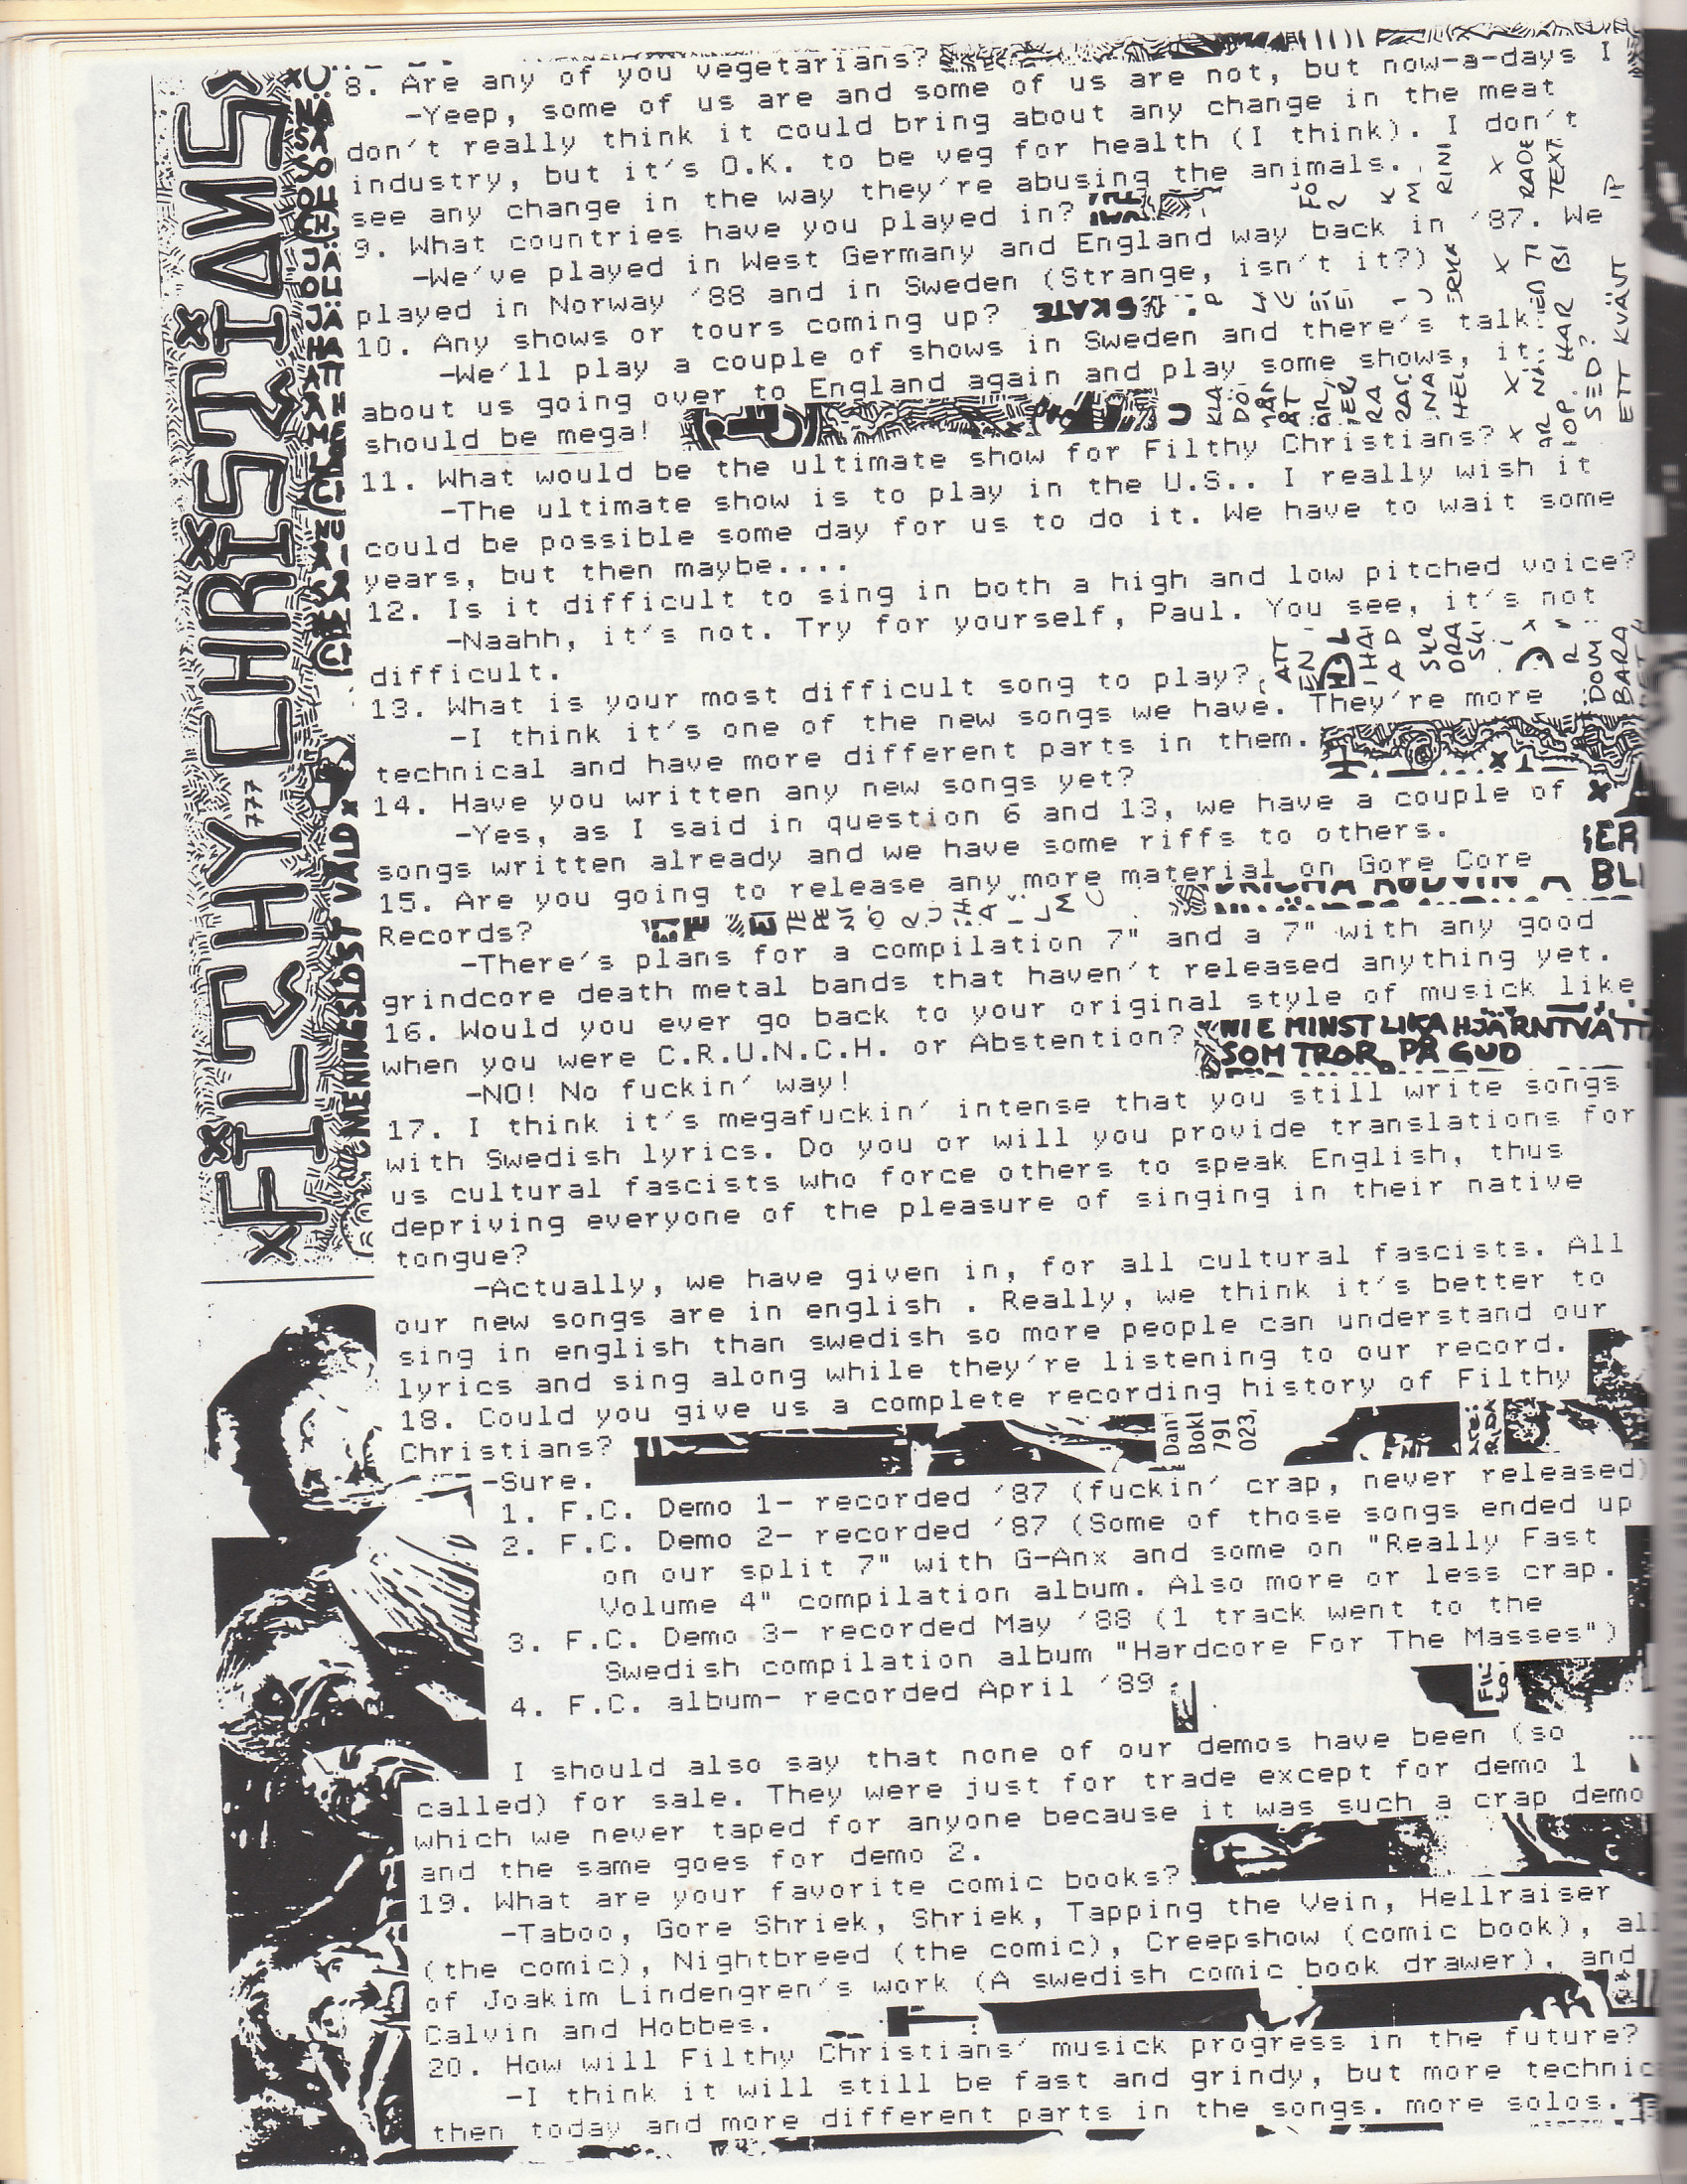 xFiLTHY CHRiSTiANSx
777
MENINGSLÖST VÅLD
8. Are any of you vegetarians?
-Yeep, some of us are and some of us are not, but now-a-days I
don't really think it could bring about any change in the meat
industry, but it's O.K. to be veg for health (I think). I don't
see any change in the way they're abusing the animals.
9. What countries have you played in?
-We've played in West Germany and England way back in '87. We
played in Norway '88 and in Sweden (Strange, isn't it?)
10. Any shows or tours coming up?
SKATE
-We'll play a couple of shows in Sweden and there's talk
about us going over to England again and play some shows, it
should be mega!
11. What would be the ultimate show for Filthy Christians?
-The ultimate show is to play in the U.S.. I really wish it
could be possible some day for us to do it. We have to wait some
years, but then maybe....
12. Is it difficult to sing in both a high and low pitched voice?
-Naahh, it's not. Try for yourself, Paul. You see, it's not
difficult.
13. What is your most difficult song to play?
-I think it's one of the new songs we have. They're more
technical and have more different parts in them.
14. Have you written any new songs yet?
-Yes, as I said in question 6 and 13, we have a couple of
songs written already and we have some riffs to others.
15. Are you going to release any more material on Gore Core
Records?
-There's plans for a compilation 7" and a 7" with any good
grindcore death metal bands that haven't released anything yet.
16. Would you ever go back to your original style of musick like
when you were C.R.U.N.C.H. or Abstention?
NIE MINST LIKA HJÄRNTVÄTT
SOM TROR PÅ GUD
-NO! No fuckin' way!
17. I think it's megafuckin' intense that you still write songs
with Swedish lyrics. Do you or will you provide translations for
us cultural fascists who force others to speak English, thus
depriving everyone of the pleasure of singing in their native
tongue?
-Actually, we have given in, for all cultural fascists. All
our new songs are in english . Really, we think it's better to
sing in english than swedish so more people can understand our
lyrics and sing along while they're listening to our record.
18. Could you give us a complete recording history of Filthy
Christians?
-Sure.
1. F.C. Demo 1- recorded '87 (fuckin' crap, never released)
2. F.C. Demo 2- recorded '87 (Some of those songs ended up
on our split 7" with G-Anx and some on "Really Fast
Volume 4" compilation album. Also more or less crap.
3. F.C. Demo 3- recorded May '88 (1 track went to the
Swedish compilation album "Hardcore For The Masses")
4. F.C. album- recorded April '89
I should also say that none of our demos have been (so
called) for sale. They were just for trade except for demo 1
which we never taped for anyone because it was such a crap demo
and the same goes for demo 2.
19. What are your favorite comic books?
-Taboo, Gore Shriek, Shriek, Tapping the Vein, Hellraiser
(the comic), Nightbreed (the comic), Creepshow (comic book), all
of Joakim Lindengren's work (A swedish comic book drawer), and
Calvin and Hobbes.
20. How will Filthy Christians' musick progress in the future?
-I think it will still be fast and grindy, but more technic
then today and more different parts in the songs. more solos.